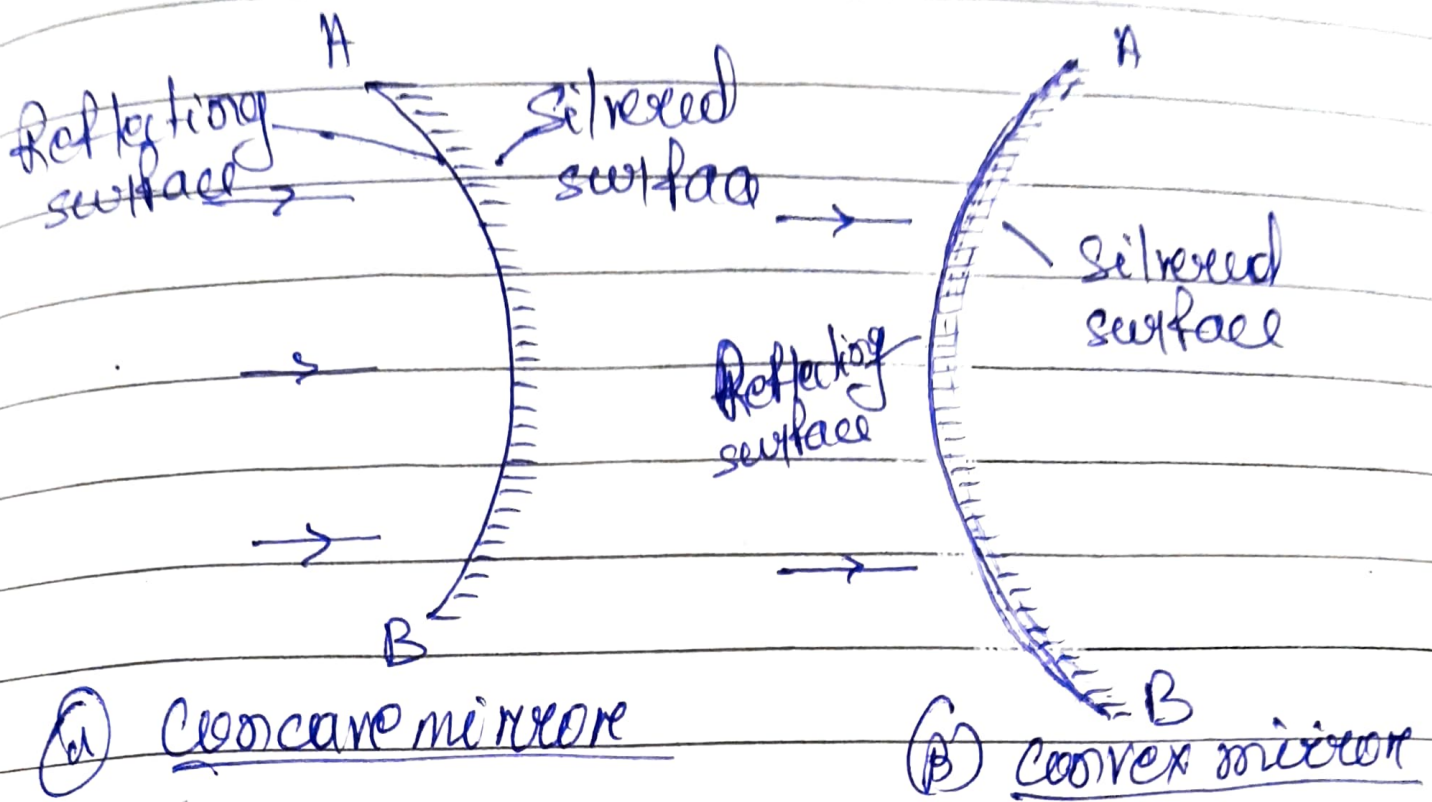 A
Reflecting
surface
Silvered
surface
B
(a) Concave mirror
A
Silvered
surface
Reflecting
surface
B
(B) convex mirror